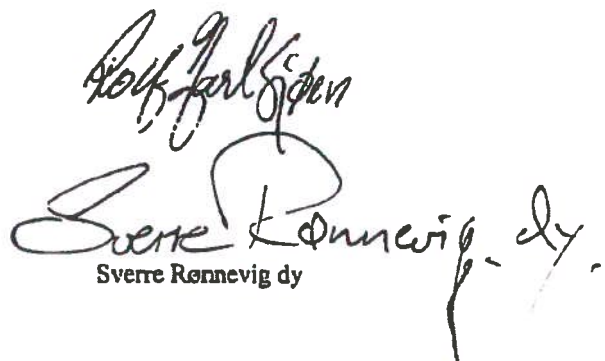 Rolf Jarl Sjøen
Sverre Rønnevig. dy.
Sverre Rønnevig dy